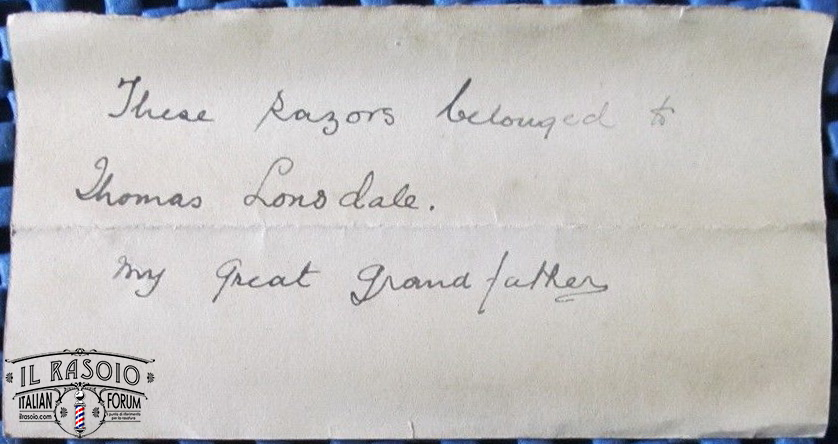 These Razors belonged to
Thomas Lonsdale.
My Great Grand father
IL RASOIO
ITALIAN FORUM
ilrasoio.com